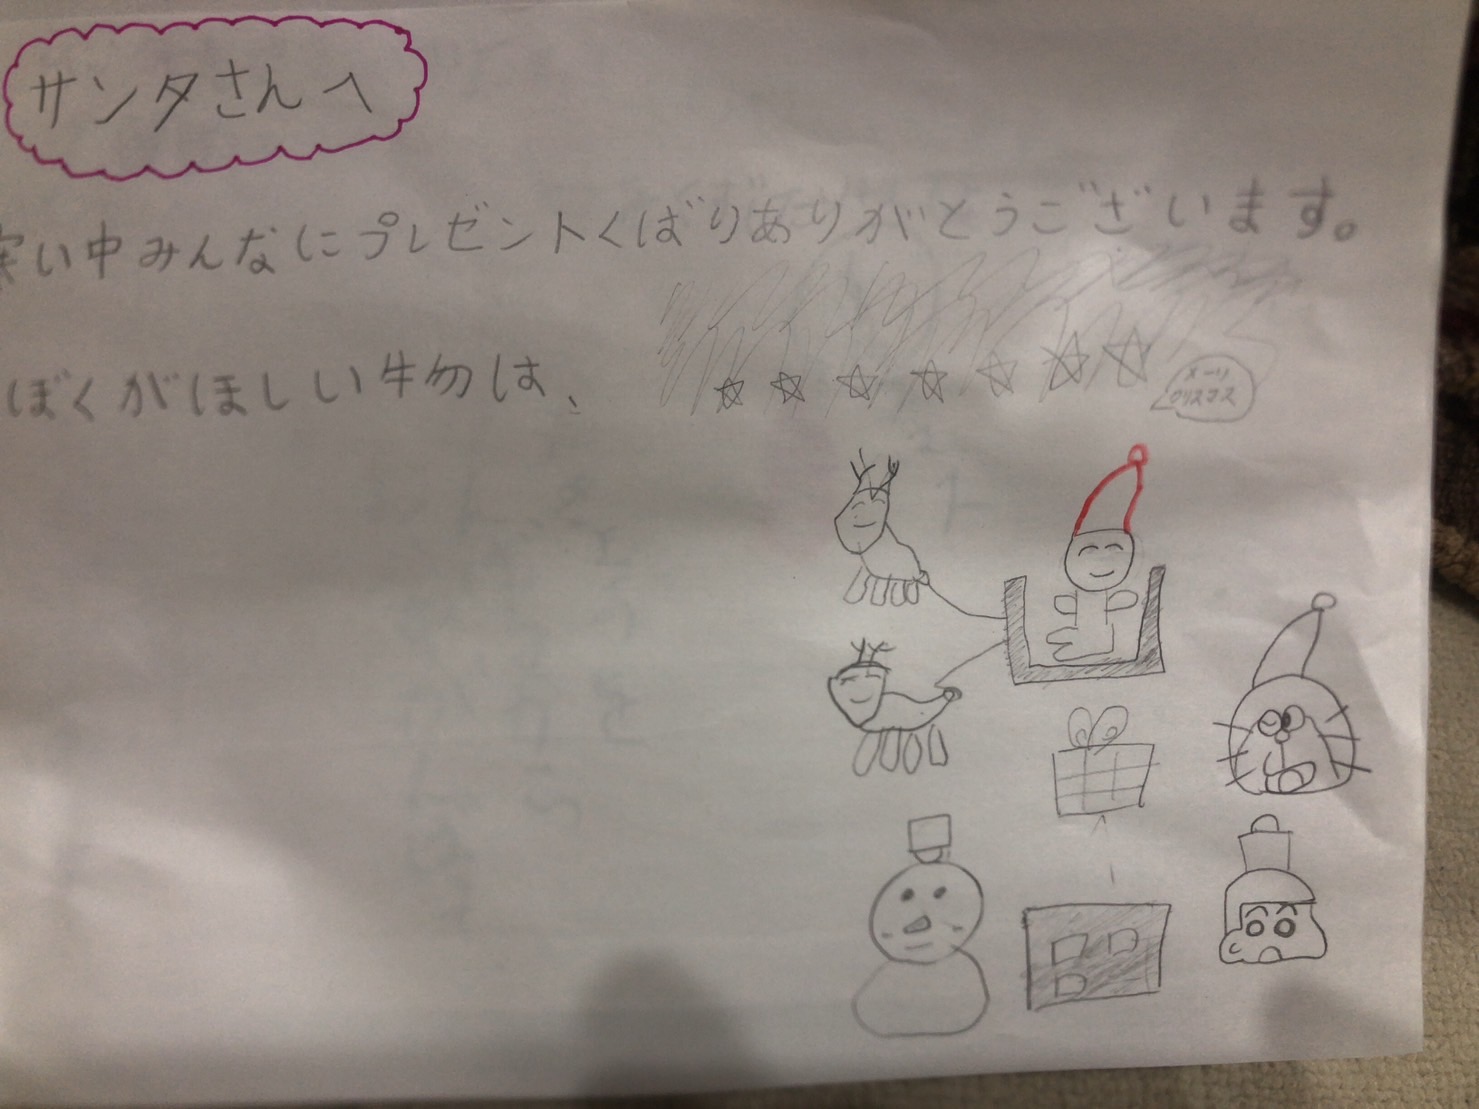 サンタさんへ
寒い中みんなにプレゼントくばりありがとうございます。
ぼくがほしい物は、
メーリ
クリスマス